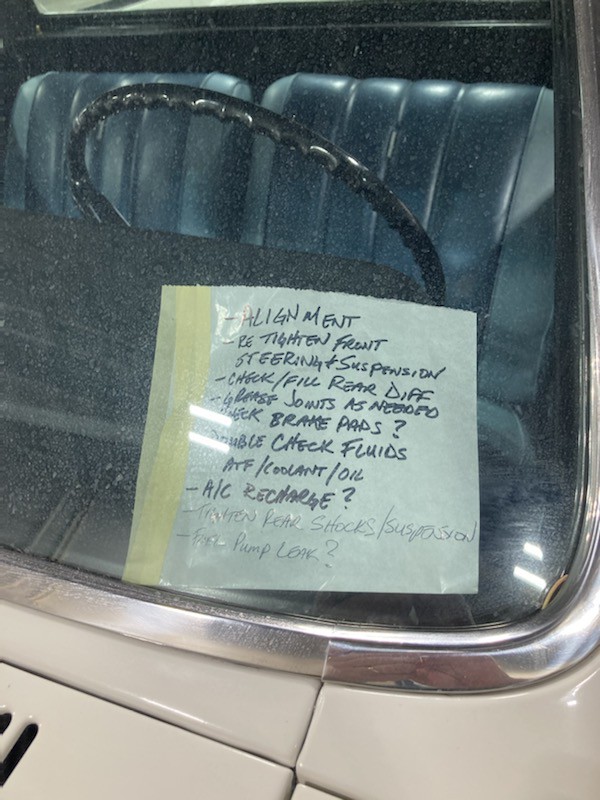 - ALIGNMENT
- RE TIGHTEN FRONT
STEERING & SUSPENSION
- CHECK/FILL REAR DIFF
- GREASE JOINTS AS NEEDED
CHECK BRAKE PADS?
DOUBLE CHECK FLUIDS
ATF/COOLANT/OIL
- A/C RECHARGE?
- TIGHTEN REAR SHOCKS/SUSPENSION
- FUEL PUMP LEAK?